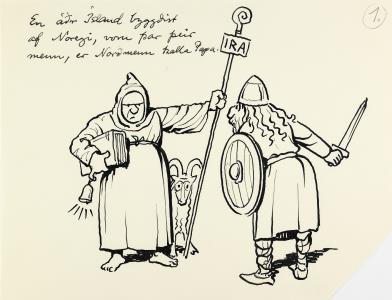 En áðr Ísland byggðist
af Noregi, voru þar þeir
menn, er Norðmenn kalla Papa.
IRA
1.